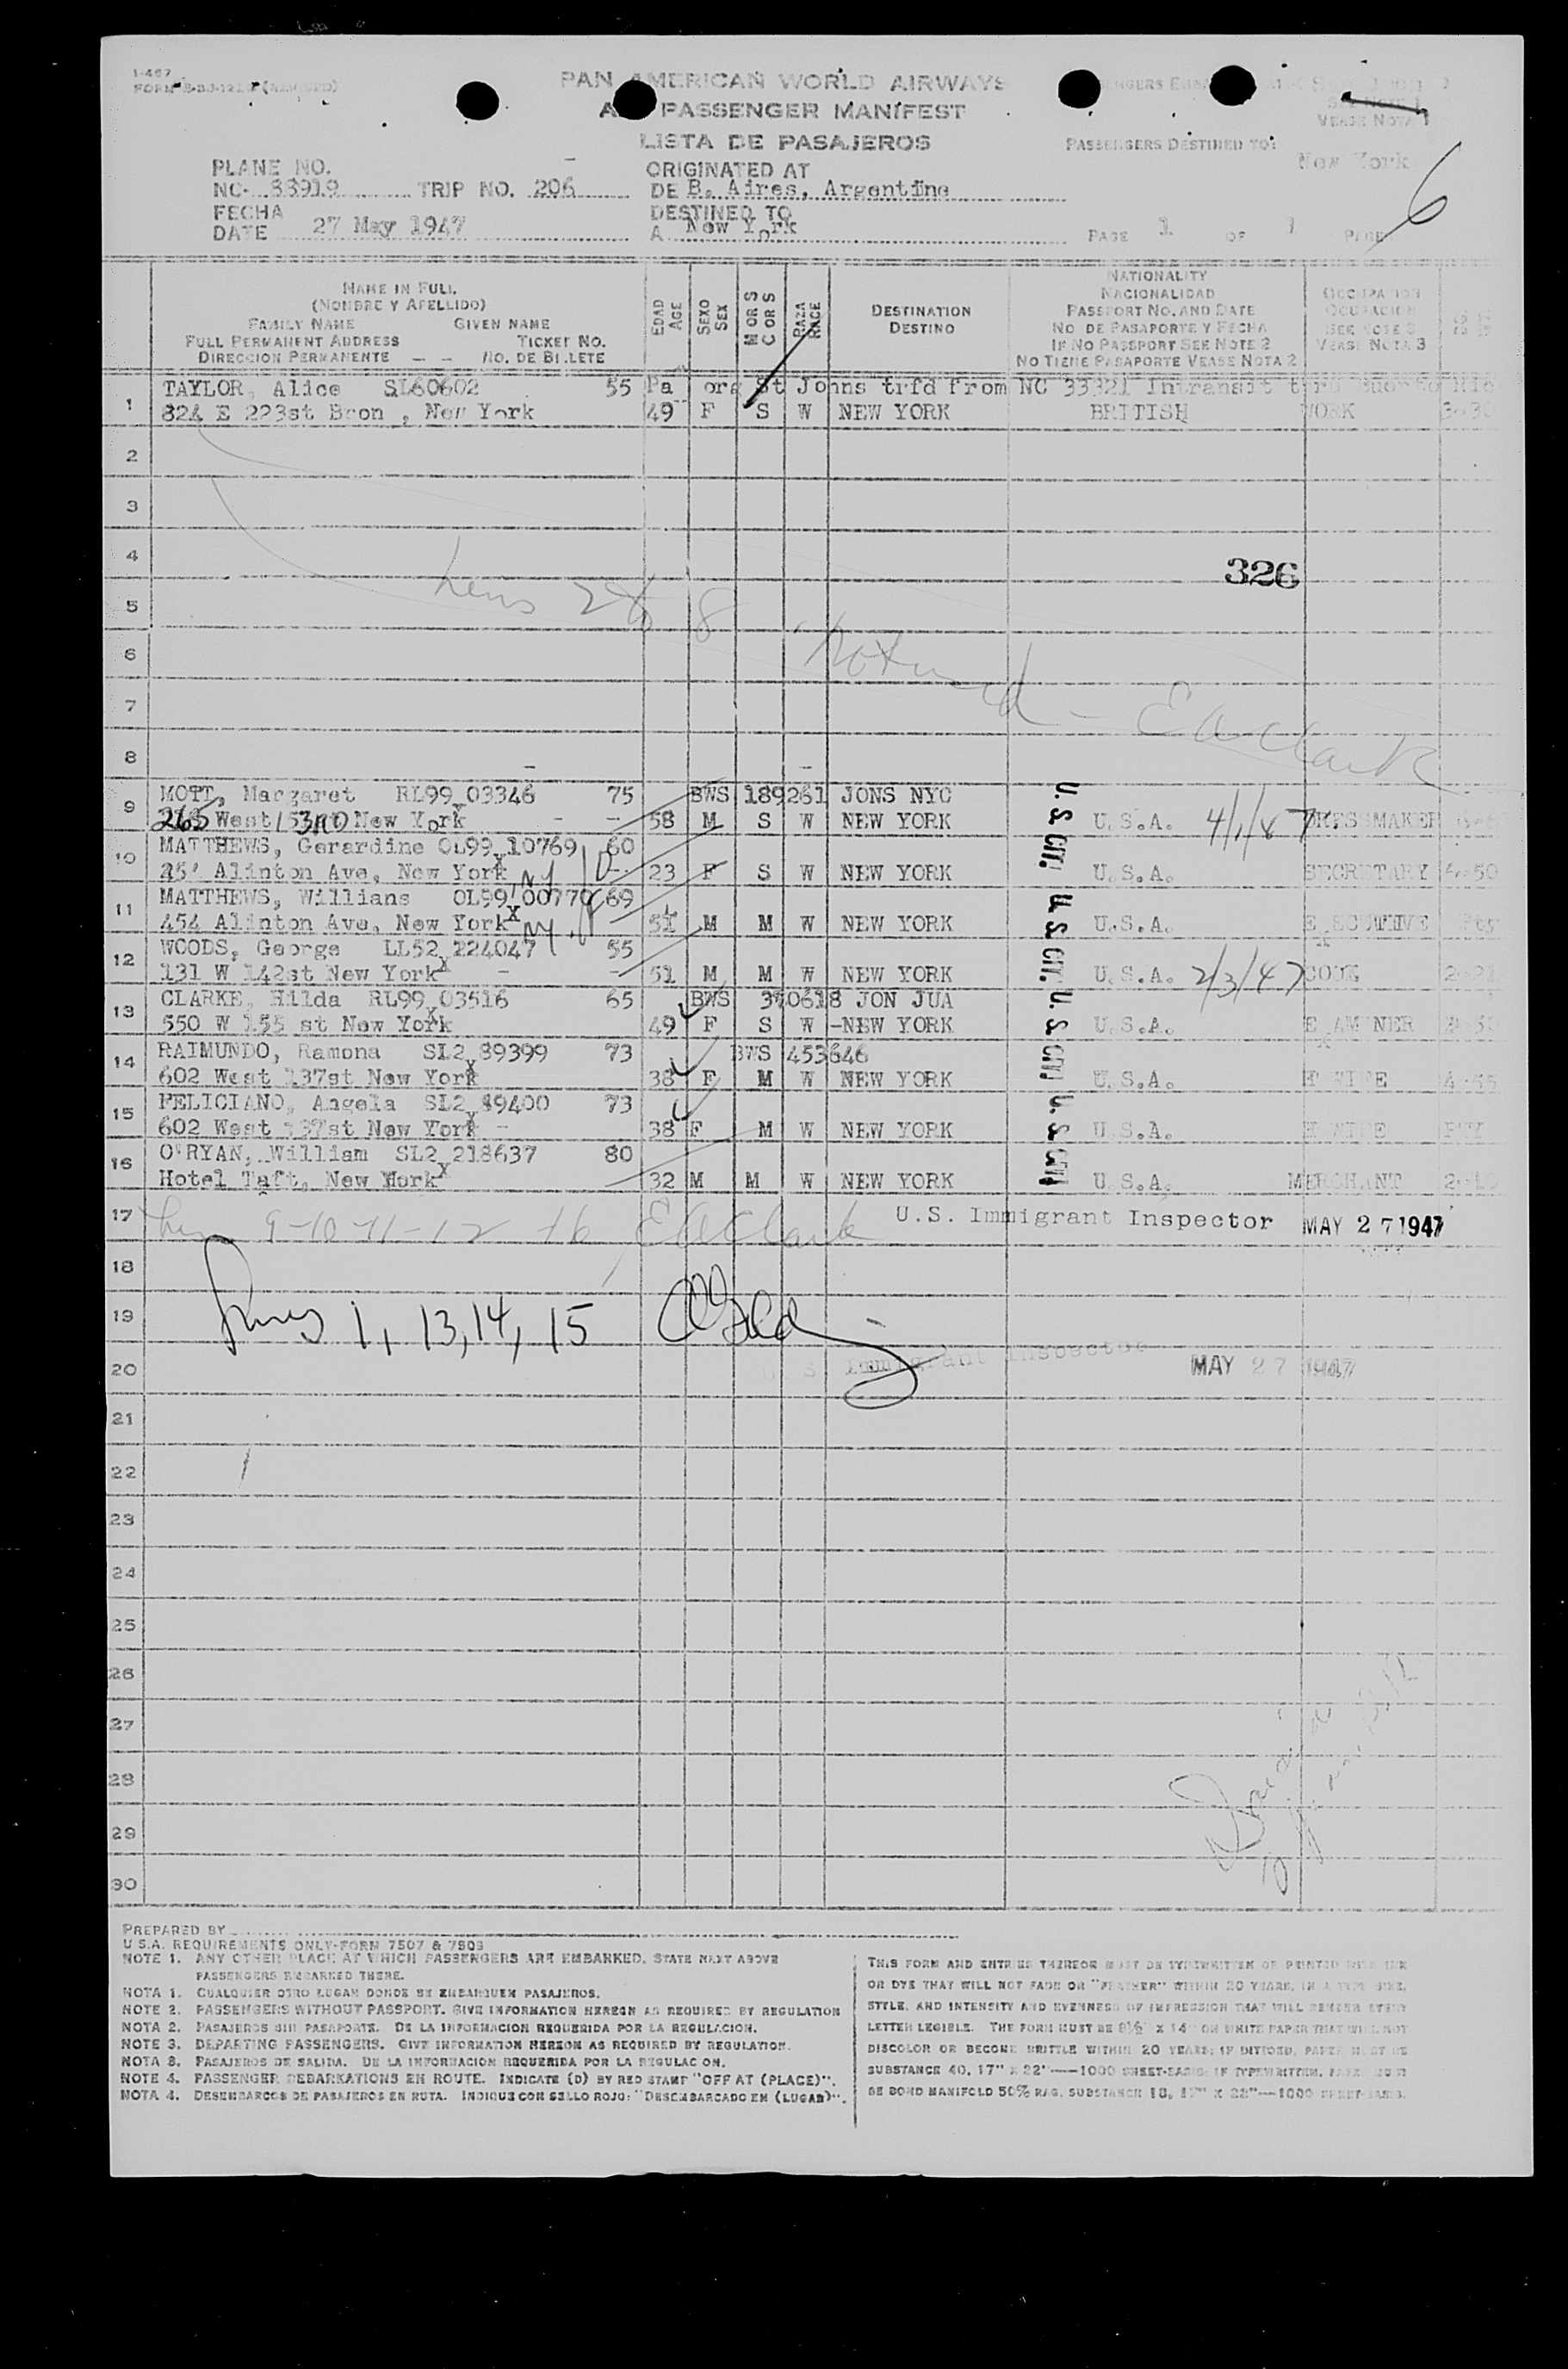 PAN AMERICAN WORLD AIRWAYS
PASSENGER MANIFEST
LISTA DE PASAJEROS
PLANE NO.
NC- 33919 TRIP NO. 206
FECHA
DATE 27 May 1947
ORIGINATED AT
DE B. Aires, Argentine
DESTINED TO
A New York
VEASE NOTA 1
PASSENGERS DESTINED TO:
New York
6
PAGE 1 OF 1
NAME IN FULL
(NOMBRE Y APELLIDO)
FAMILY NAME GIVEN NAME
FULL PERMANENT ADDRESS TICKET NO.
DIRECCION PERMANENTE -- NO. DE BILLETE
EDAD
AGE
SEXO
SEX
M OR S
C OR S
RAZA
RACE
DESTINATION
DESTINO
NATIONALITY
NACIONALIDAD
PASSPORT NO. AND DATE
NO DE PASAPORTE Y FECHA
IF NO PASSPORT SEE NOTE 2
NO TIENE PASAPORTE VEASE NOTA 2
OCCUPATION
OCUPACION
SEE NOTE 3
VEASE NOTA 3
TAYLOR, Alice SL60602 55 Pa org St Johns trfd from NC 33321 Intransit
1 824 E 223st Bron , New York 49 F S W NEW YORK BRITISH WORK 3-30
2
3
4
326
5
6
7
8
EA Clark
9 MOTT, Margaret RL99 03346 75 BWS 189261 JONS NYC
265 West 153RD New York 58 M S W NEW YORK U.S.A. 4/1/87
10 MATTHEWS, Gerardine OL99 10769 60
Alinton Ave, New York NY 23 F S W NEW YORK U.S.A. SECRETARY
11 MATTHEWS, Willians OL99 00770 69
454 Alinton Ave, New York NY 51 M M W NEW YORK U.S.A.
12 WOODS, George LL52 224047 55
131 W 142st New York 51 M M W NEW YORK U.S.A. 2/3/47
13 CLARKE, Hilda RL99 03516 65 BWS 370618 JON JUA
550 W 155 st New York 49 F S W -NEW YORK U.S.A.
14 RAIMUNDO, Ramona SL2 89399 73 BWS 453646
602 West 137st New York 38 F M W NEW YORK U.S.A.
15 FELICIANO, Angela SL2 89400 73
602 West 137st New York - 38 F M W NEW YORK U.S.A.
16 O'RYAN, William SL2 218637 80
Hotel Taft, New York 32 M M W NEW YORK U.S.A. MERCHANT
U.S CIT. U.S CIT. U.S CIT. U.S CIT.
17 9-10-11-12 16 EA Clark U.S. Immigrant Inspector MAY 27 1947
18
19 Lines 1, 13, 14, 15
20 U S Immigrant Inspector MAY 27 1947
21
22
23
24
25
26
27
28
29
30
PREPARED BY
U.S.A. REQUIREMENTS ONLY-FORM 7507 & 7509
NOTE 1. ANY OTHER PLACE AT WHICH PASSENGERS ARE EMBARKED, STATE NEXT ABOVE
PASSENGERS EMBARKED THERE.
NOTA 1. CUALQUIER OTRO LUGAR DONDE SE EMBARQUEN PASAJEROS.
NOTE 2. PASSENGERS WITHOUT PASSPORT. GIVE INFORMATION HEREON AS REQUIRED BY REGULATION
NOTA 2. PASAJEROS SIN PASAPORTE. DE LA INFORMACION REQUERIDA POR LA REGULACION.
NOTE 3. DEPARTING PASSENGERS. GIVE INFORMATION HEREON AS REQUIRED BY REGULATION.
NOTA 3. PASAJEROS DE SALIDA. DE LA INFORMACION REQUERIDA POR LA REGULAC ON.
NOTE 4. PASSENGER DEBARKATIONS EN ROUTE. INDICATE (D) BY RED STAMP "OFF AT (PLACE)".
NOTA 4. DESEMBARCOS DE PASAJEROS EN RUTA. INDIQUE CON SELLO ROJO: "DESEMBARCADO EN (LUGAR)".
THIS FORM AND ENTRIES THEREON MUST BE TYPEWRITTEN OR PRINTED WITH INK
OR DYE THAT WILL NOT FADE OR "FEATHER" WITHIN 20 YEARS, IN A TYPE SIZE,
STYLE, AND INTENSITY AND EVENNESS OF IMPRESSION THAT WILL RENDER EVERY
LETTER LEGIBLE. THE FORM MUST BE 8½" X 14" ON WHITE PAPER THAT WILL NOT
DISCOLOR OR BECOME BRITTLE WITHIN 20 YEARS; IF DITTOED, PAPER MUST BE
SUBSTANCE 40, 17" X 22"—1000 SHEET-BASIS; IF TYPEWRITTEN, PAPER MUST
BE BOND MANIFOLD 50% RAG, SUBSTANCE 18, 17" X 22"—1000 SHEET-BASIS.